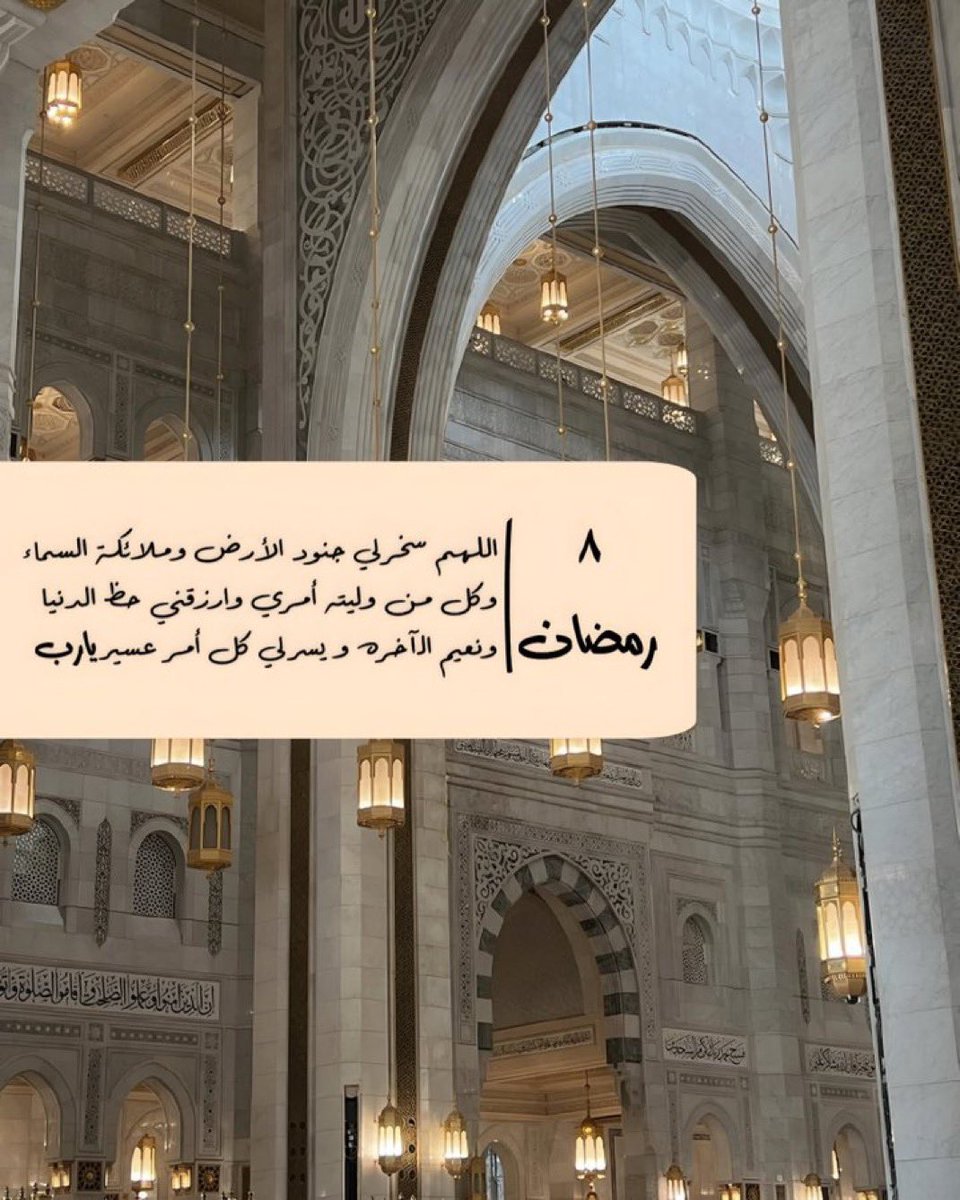 ٨
رمضان
اللهم سخرلي جنود الأرض وملائكة السماء
وكل من وليته أمري وارزقني حظ الدنيا
ونعيم الآخره ويسرلي كل أمر عسير يارب
إن الذين آمنوا وعملوا الصالحات وأقاموا الصلوة